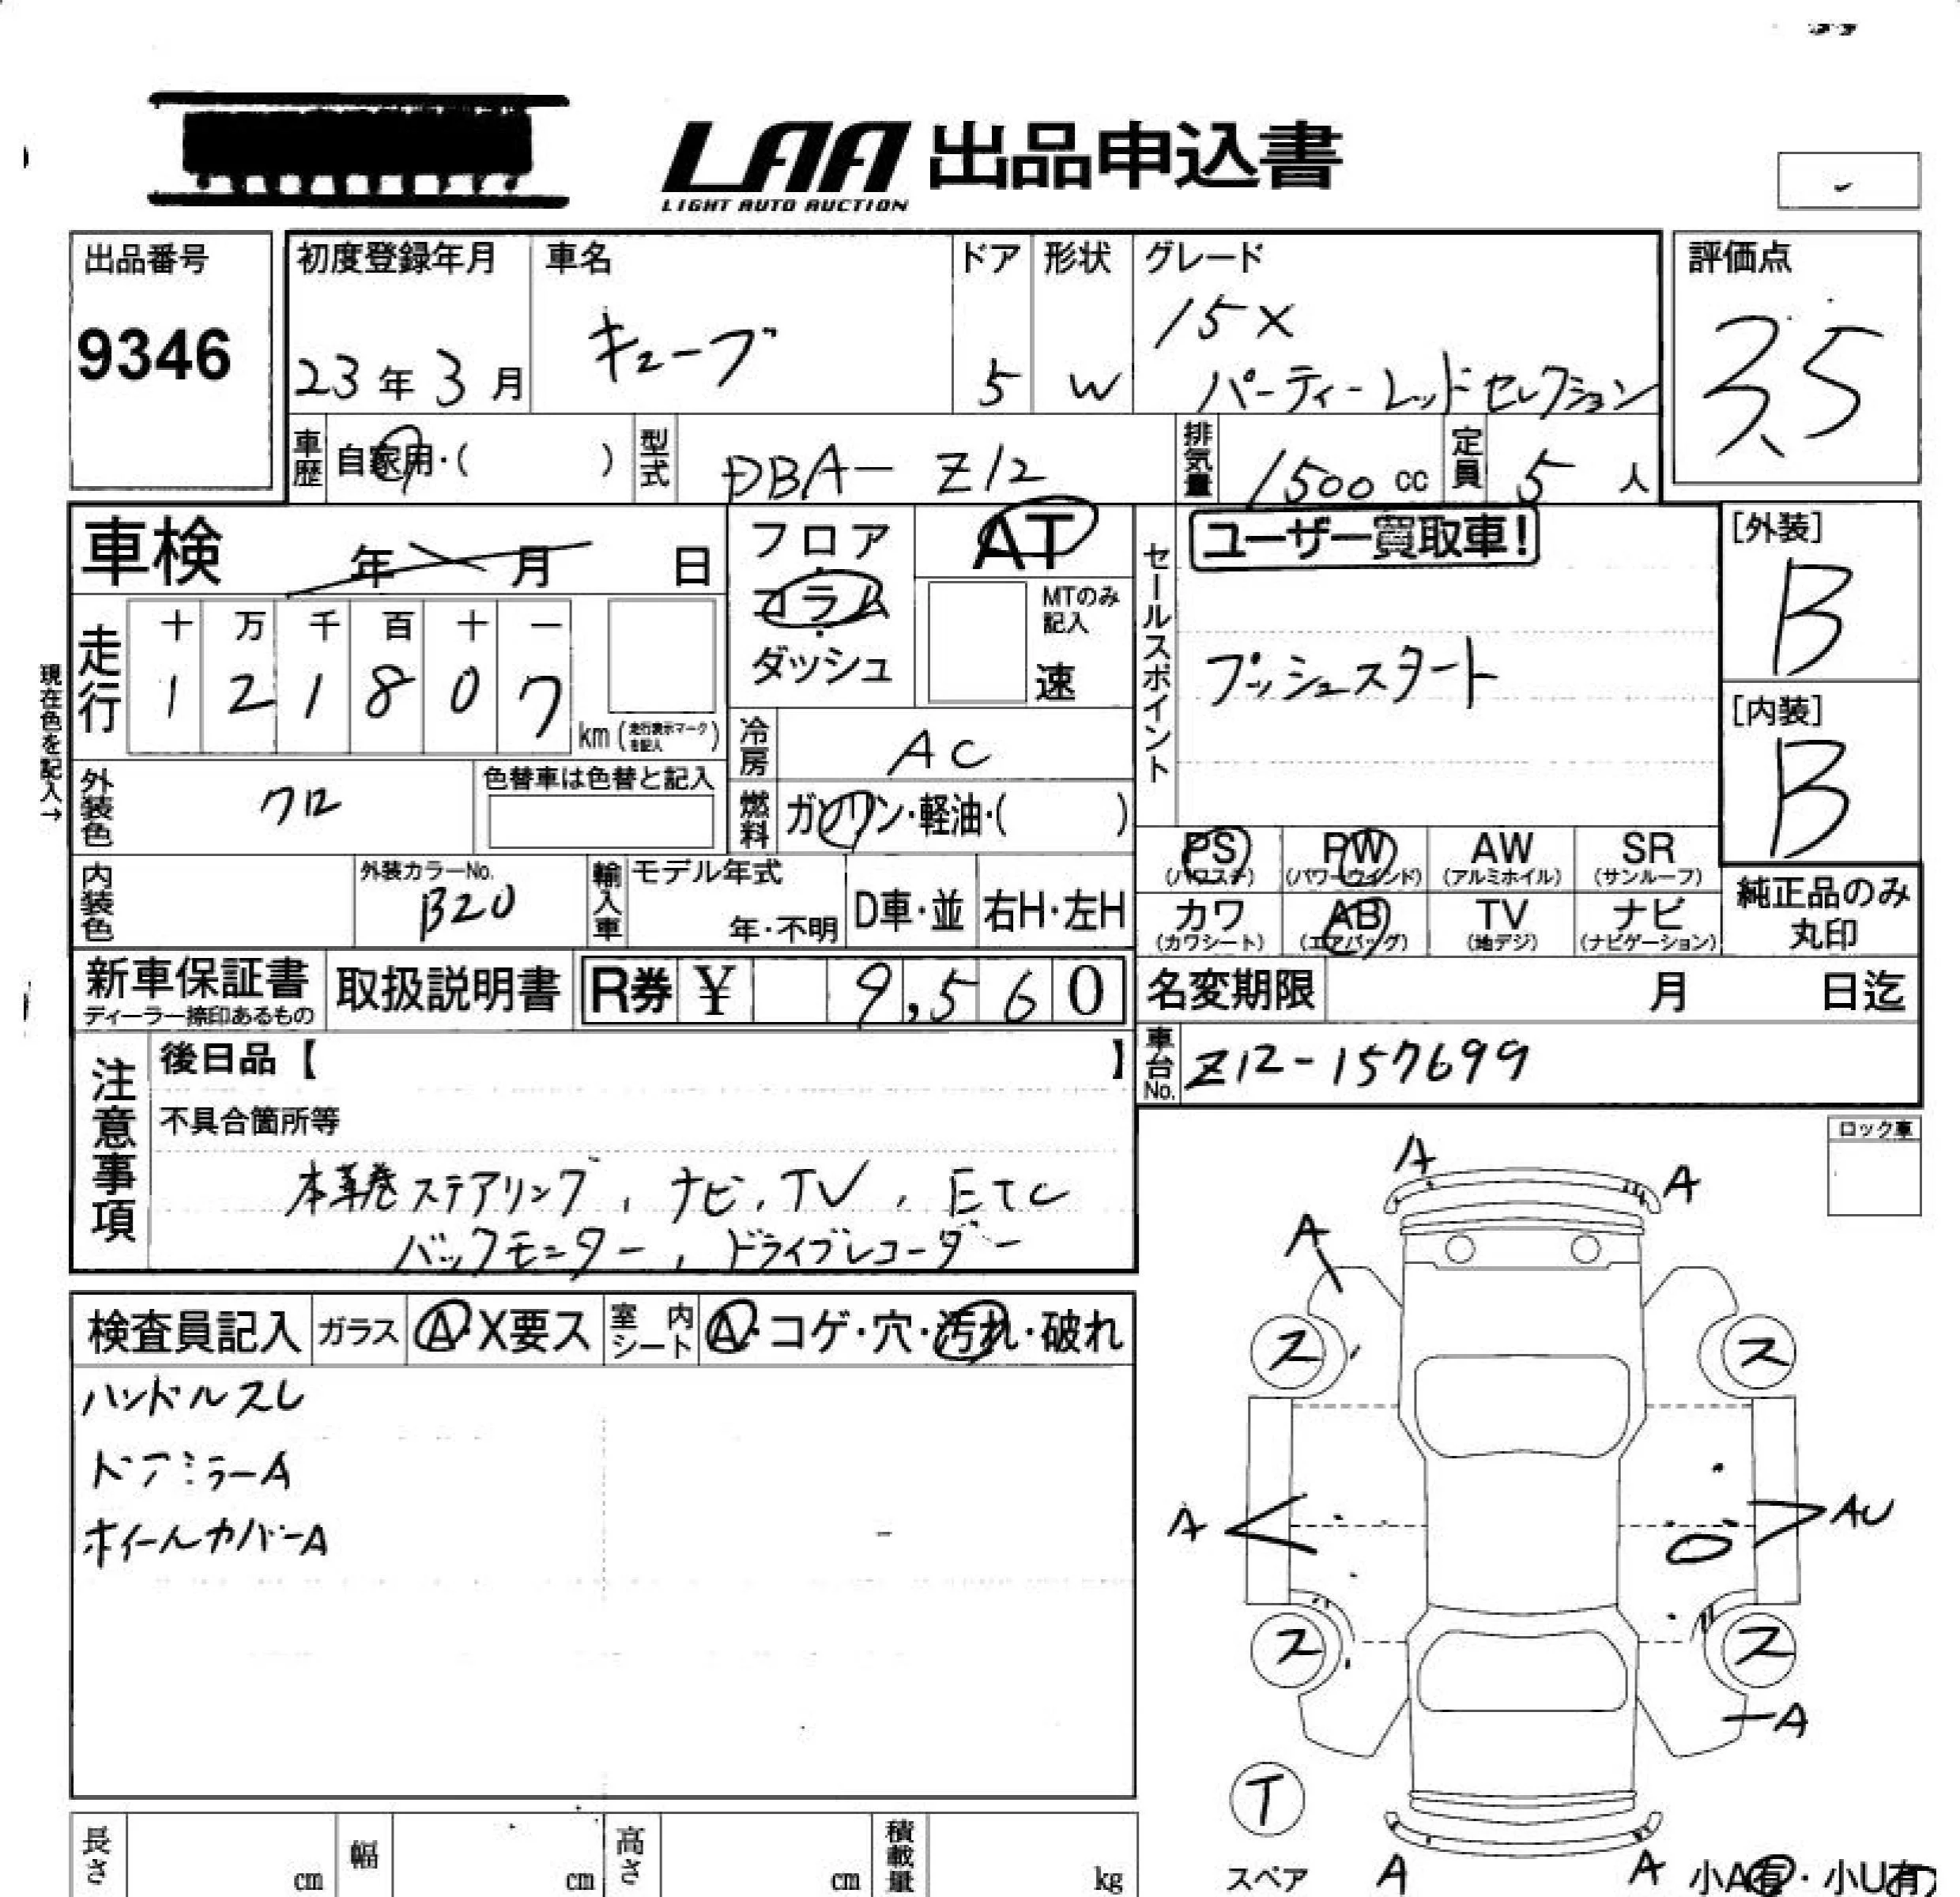 LAA 出品申込書
LIGHT AUTO AUCTION
出品番号
9346
初度登録年月
23年3月
車名
キューブ
ドア
5
形状
W
グレード
15X
パーティーレッドセレクション
評価点
3.5
車歴 自家用・( )
型式 DBA- Z12
排気量 1500 cc
定員 5 人
車検 年 月 日
走行 十 万 千 百 十 一
1 2 1 8 0 7
km (走行表示マークを記入)
現在色を記入→
フロア・コラム・ダッシュ
AT
MTのみ記入
速
セールスポイント
ユーザー買取車!
プッシュスタート
[外装]
B
[内装]
B
冷房 AC
燃料 ガソリン・軽油・( )
外装色 クロ
色替車は色替と記入
内装色
外装カラーNo.
B20
輸入車 モデル年式
年・不明
D車・並
右H・左H
PS (パワステ)
PW (パワーウィンド)
AW (アルミホイル)
SR (サンルーフ)
カワ (カワシート)
AB (エアバッグ)
TV (地デジ)
ナビ (ナビゲーション)
純正品のみ丸印
新車保証書
ディーラー捺印あるもの
取扱説明書
R券 ¥ 9,560
名変期限 月 日迄
車台No. Z12-157699
注意事項
後日品【 】
不具合箇所等
本革巻ステアリング, ナビ, TV, ETC
バックモニター, ドライブレコーダー
ロック車
検査員記入
ガラス A・X要ス
室内シート A・コゲ・穴・汚れ・破れ
ハンドルスレ
ドアミラーA
ホイールカバーA
A
A
A
ス
ス
A
AU
ス
ス
A
T
スペア
A
A
小A有・小U有
長さ cm
幅 cm
高さ cm
積載量 kg